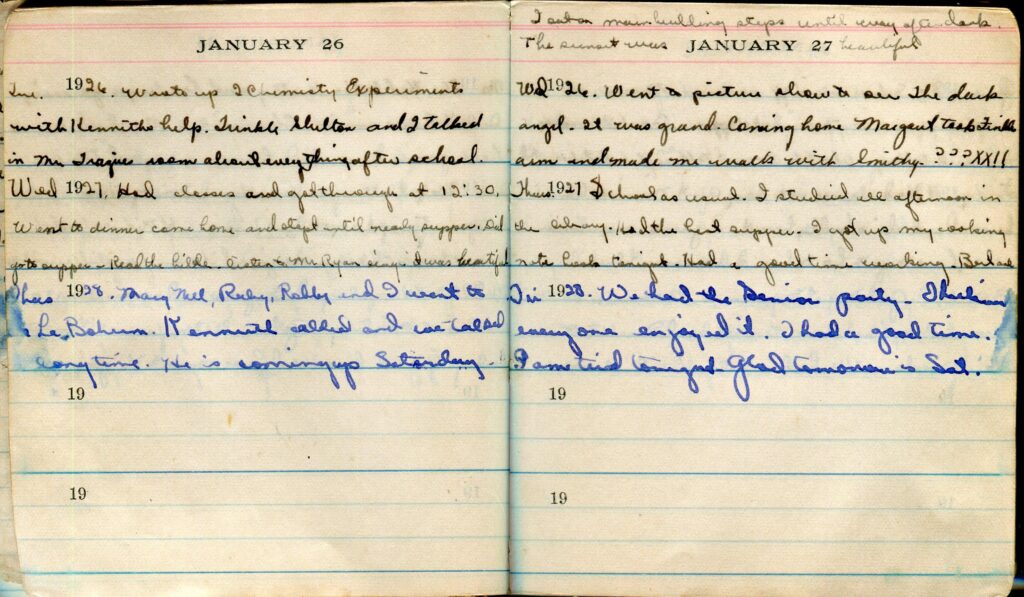 JANUARY 26
Tue. 1926. Wrote up 2 Chemisty Experiments
with Kenniths help. Trinkle Shelton and I talked
in Mr room about everything after school.
Wed 1927, Had classes and got through at 12:30.
Went to dinner came home and slept until nearly supper. Did
go to supper. Read the bible. Mr Ryan sing. it was beautiful
Thurs 1928. Marg Nell, Ruby, Robby and I went to
La Bohem. Kenneth called and we talked
long time. He is coming up Saturday.
19
19
I sat on main building steps until way after dark.
The sunset was beautiful
JANUARY 27
Wed 1926. Went to picture show to see The dark
angel. It was grand. Coming home Margaret took Trinkle
arm and made me walk with Smithy. ???XX!!
Thurs. 1927 School as usual. I studied all afternoon in
the library. Had the best supper. I got up my cooking
note book tonight. Had a good time working.
Fri 1928. We had the Senior party. I believe
every one enjoyed it. I had a good time.
I am tired tonight. Glad tomorrow is Sat.
19
19